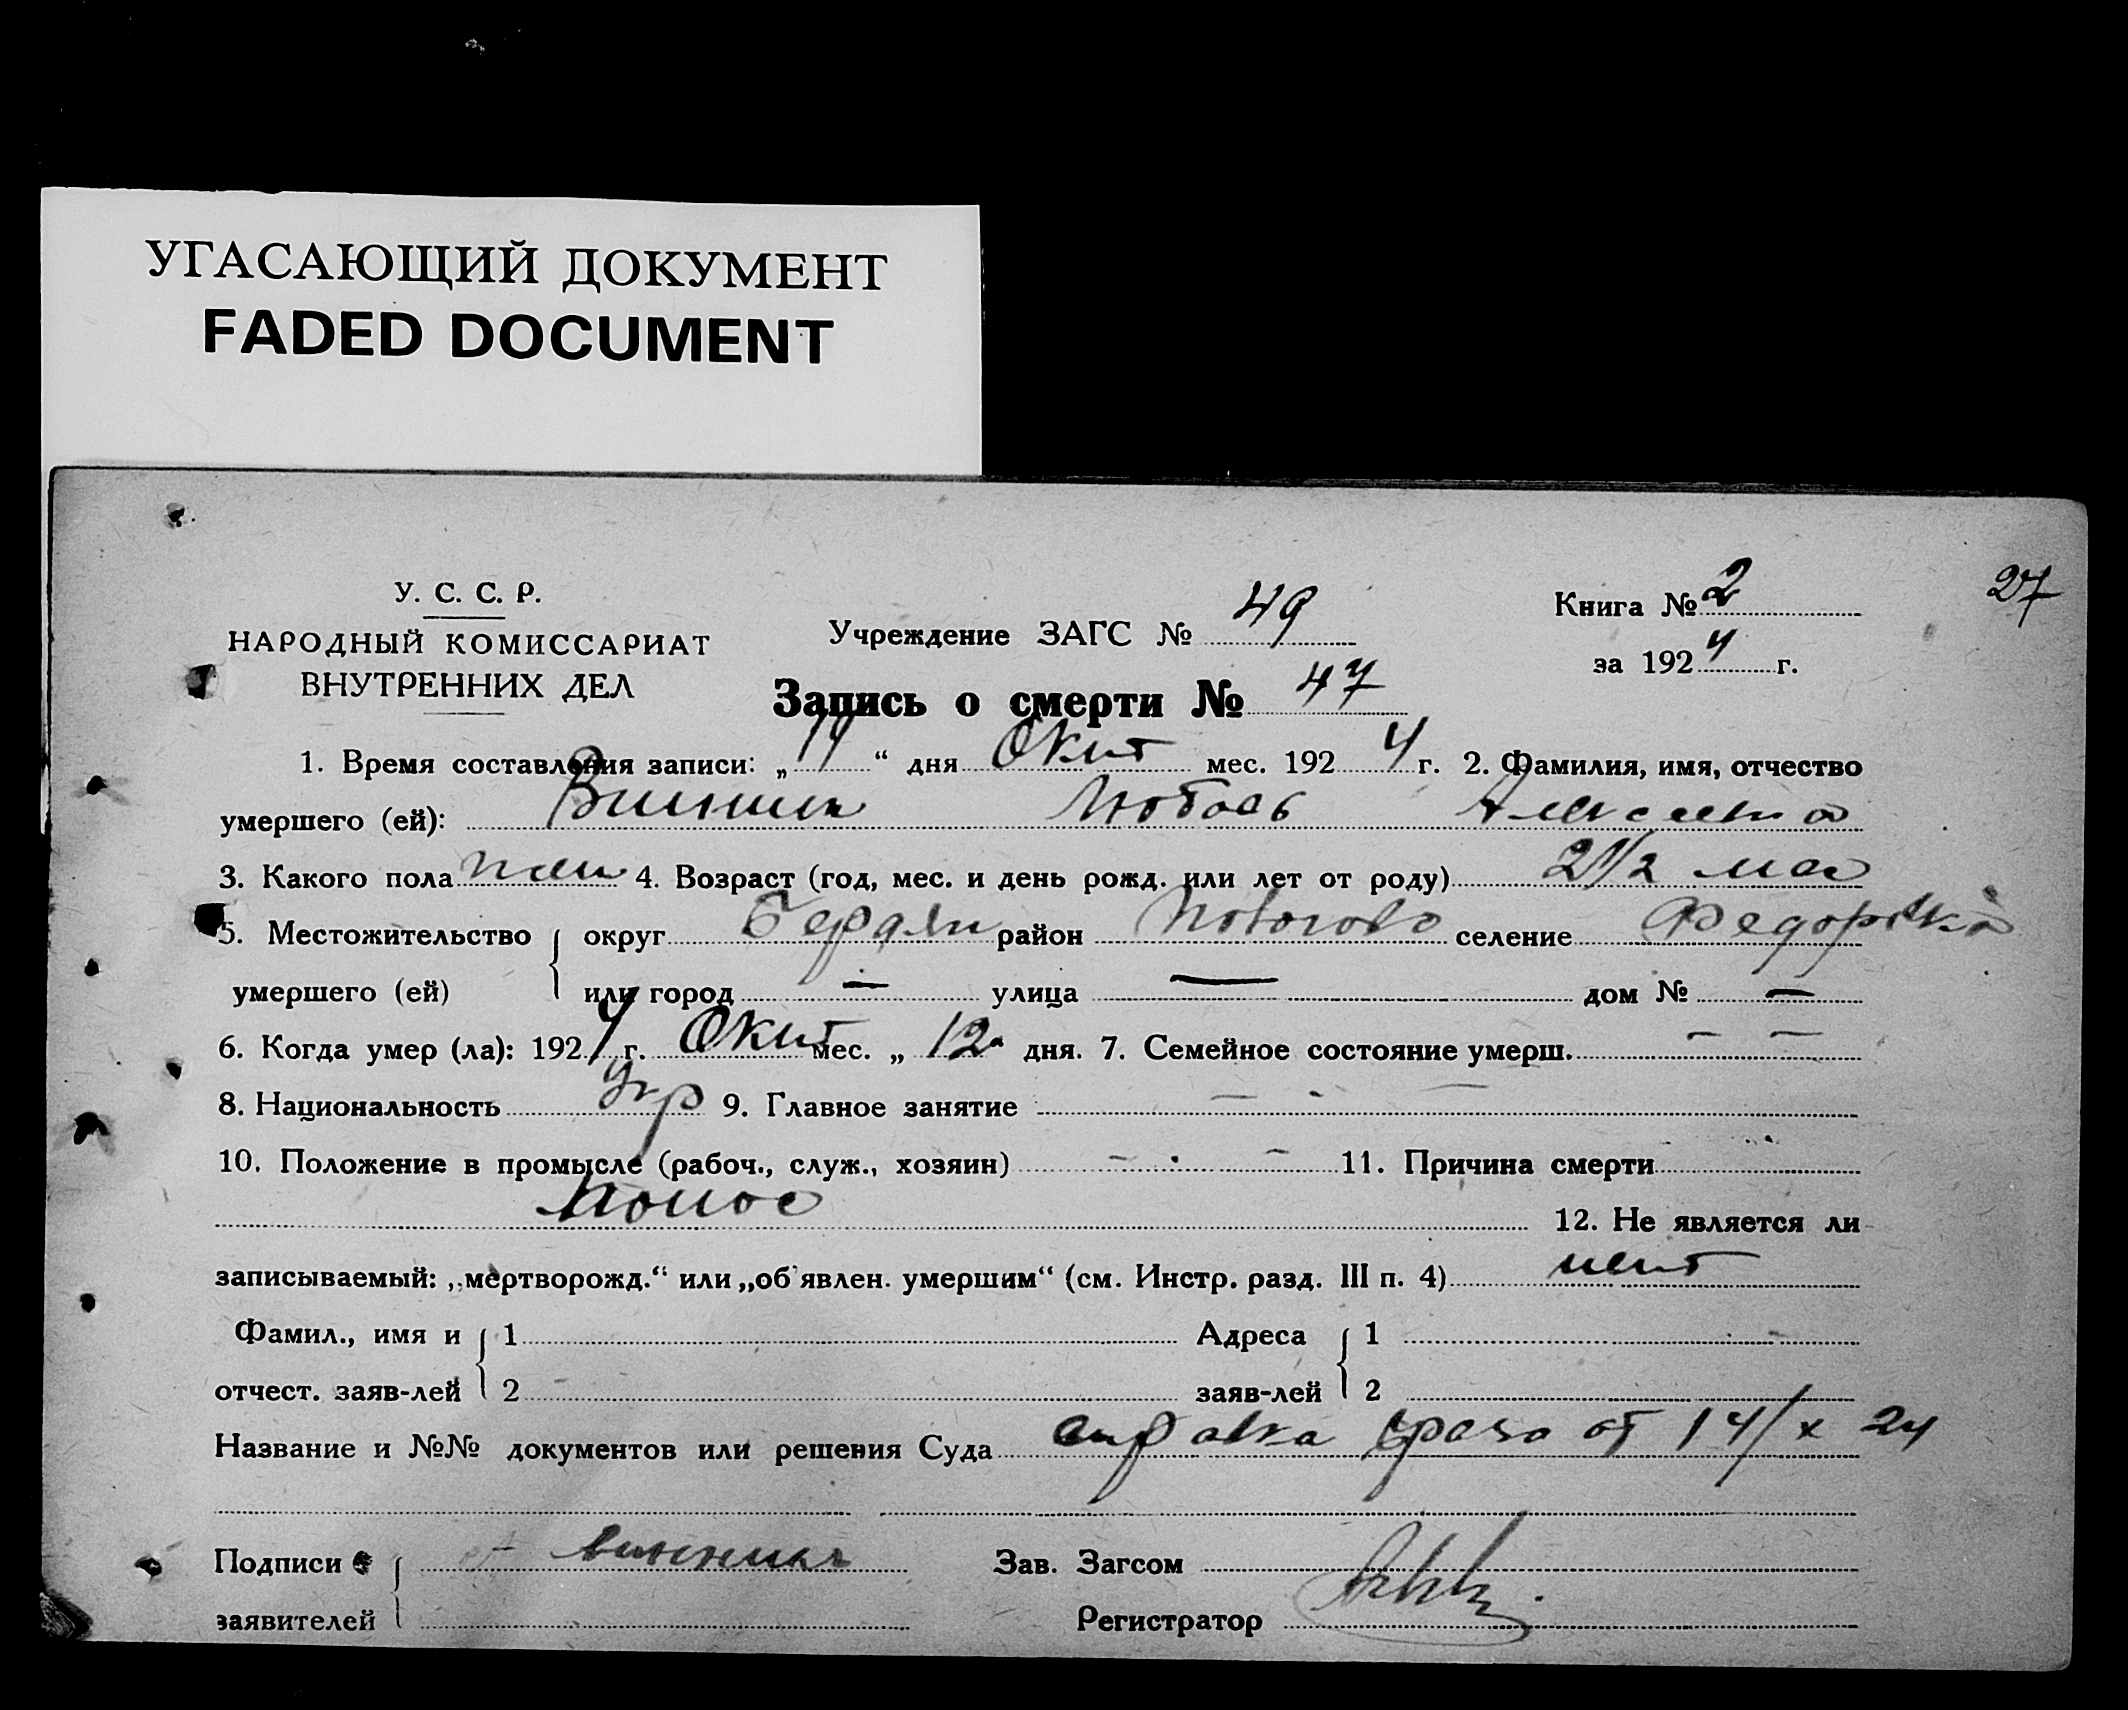 УГАСАЮЩИЙ ДОКУМЕНТ
FADED DOCUMENT
27
У. С. С. Р.
НАРОДНЫЙ КОМИССАРИАТ
ВНУТРЕННИХ ДЕЛ
Учреждение ЗАГС № 49
Книга № 2
за 1924 г.
Запись о смерти № 47
1. Время составления записи: „14“ дня Окт мес. 1924 г. 2. Фамилия, имя, отчество
умершего (ей): Винник Любовь
3. Какого пола жен 4. Возраст (год, мес. и день рожд. или лет от роду) 2 1/2 мес
5. Местожительство округ Бердян район селение Федоровка
умершего (ей) или город — улица — дом № —
6. Когда умер (ла): 1924 г. Окт мес. „ 12 дня. 7. Семейное состояние умерш. — —
8. Национальность Укр 9. Главное занятие —
10. Положение в промысле (рабоч., служ., хозяин) — — 11. Причина смерти
понос 12. Не является ли
записываемый: „мертворожд.“ или „об'явлен. умершим“ (см. Инстр. разд. III п. 4) нет
Фамил., имя и 1 Адреса 1
отчест. заяв-лей 2 заяв-лей 2
Название и №№ документов или решения Суда справка врача от 14/X 24
Подписи Винник Зав. Загсом
заявителей Регистратор